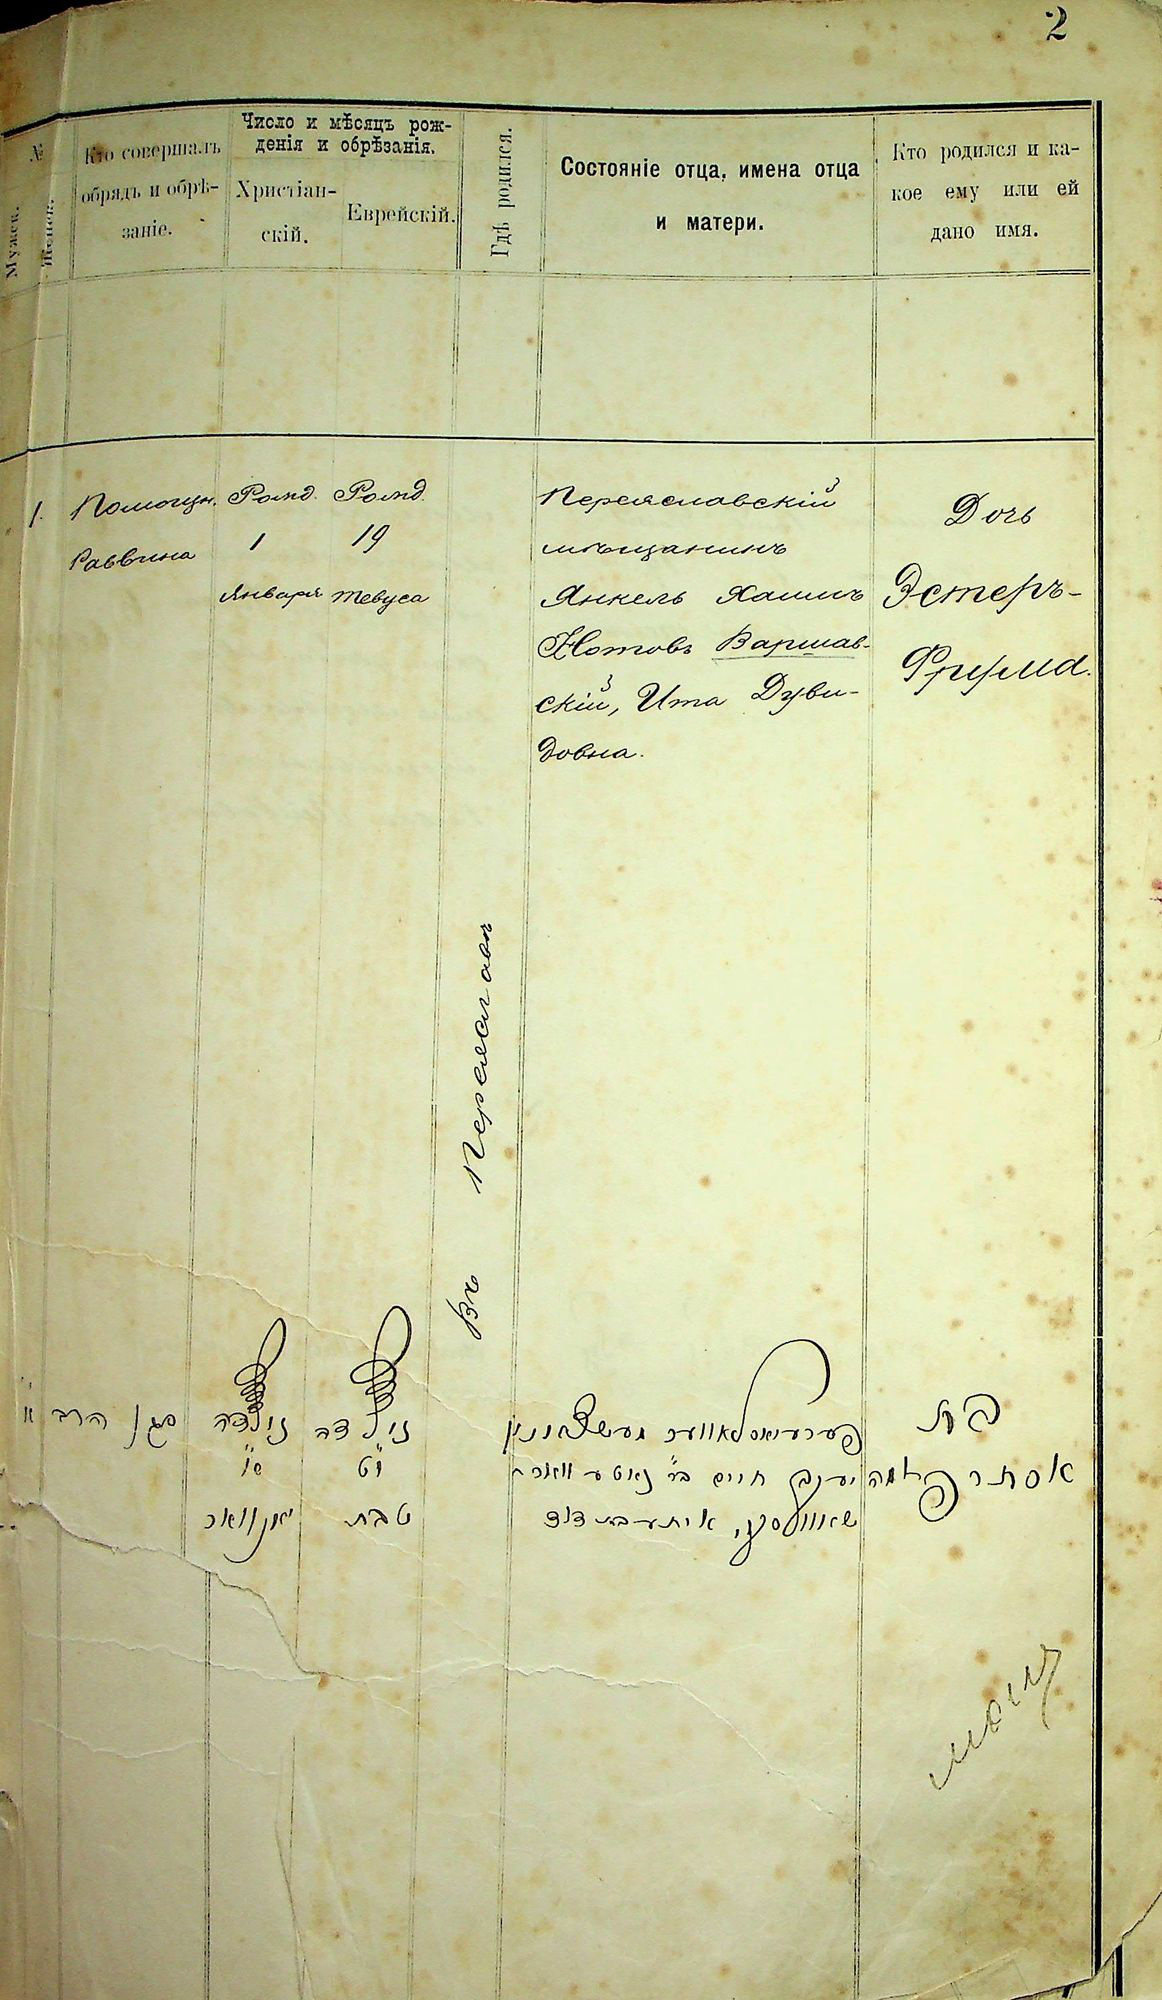 2
№
Мужск.
Женск.
Кто совершалъ
обрядъ и обрѣ-
заніе.
Число и мѣсяцъ рож-
денія и обрѣзанія.
Христіан-
скій.
Еврейскій.
Гдѣ родился.
Состояніе отца, имена отца
и матери.
Кто родился и ка-
кое ему или ей
дано имя.
1.
Помощн.
Раввина
Рожд.
1
Января
Рожд.
19
Тевуса
Въ Переяславѣ
Переяславскій
мѣщанинъ
Янкель Хаимъ
Нотовъ Варшав-
скій, Ита Дуви-
довна.
Дочь
Эстеръ-
Фрума.
סגן הרב
נולדה
יאנוואר
נולדה
י"ט
טבת
פערעיאסלאווער מעשצאנין
יעקב חיים ב"ר נאטע ווארא
שאווסקי, איטע בת דוד
בת
אסתר פרומה